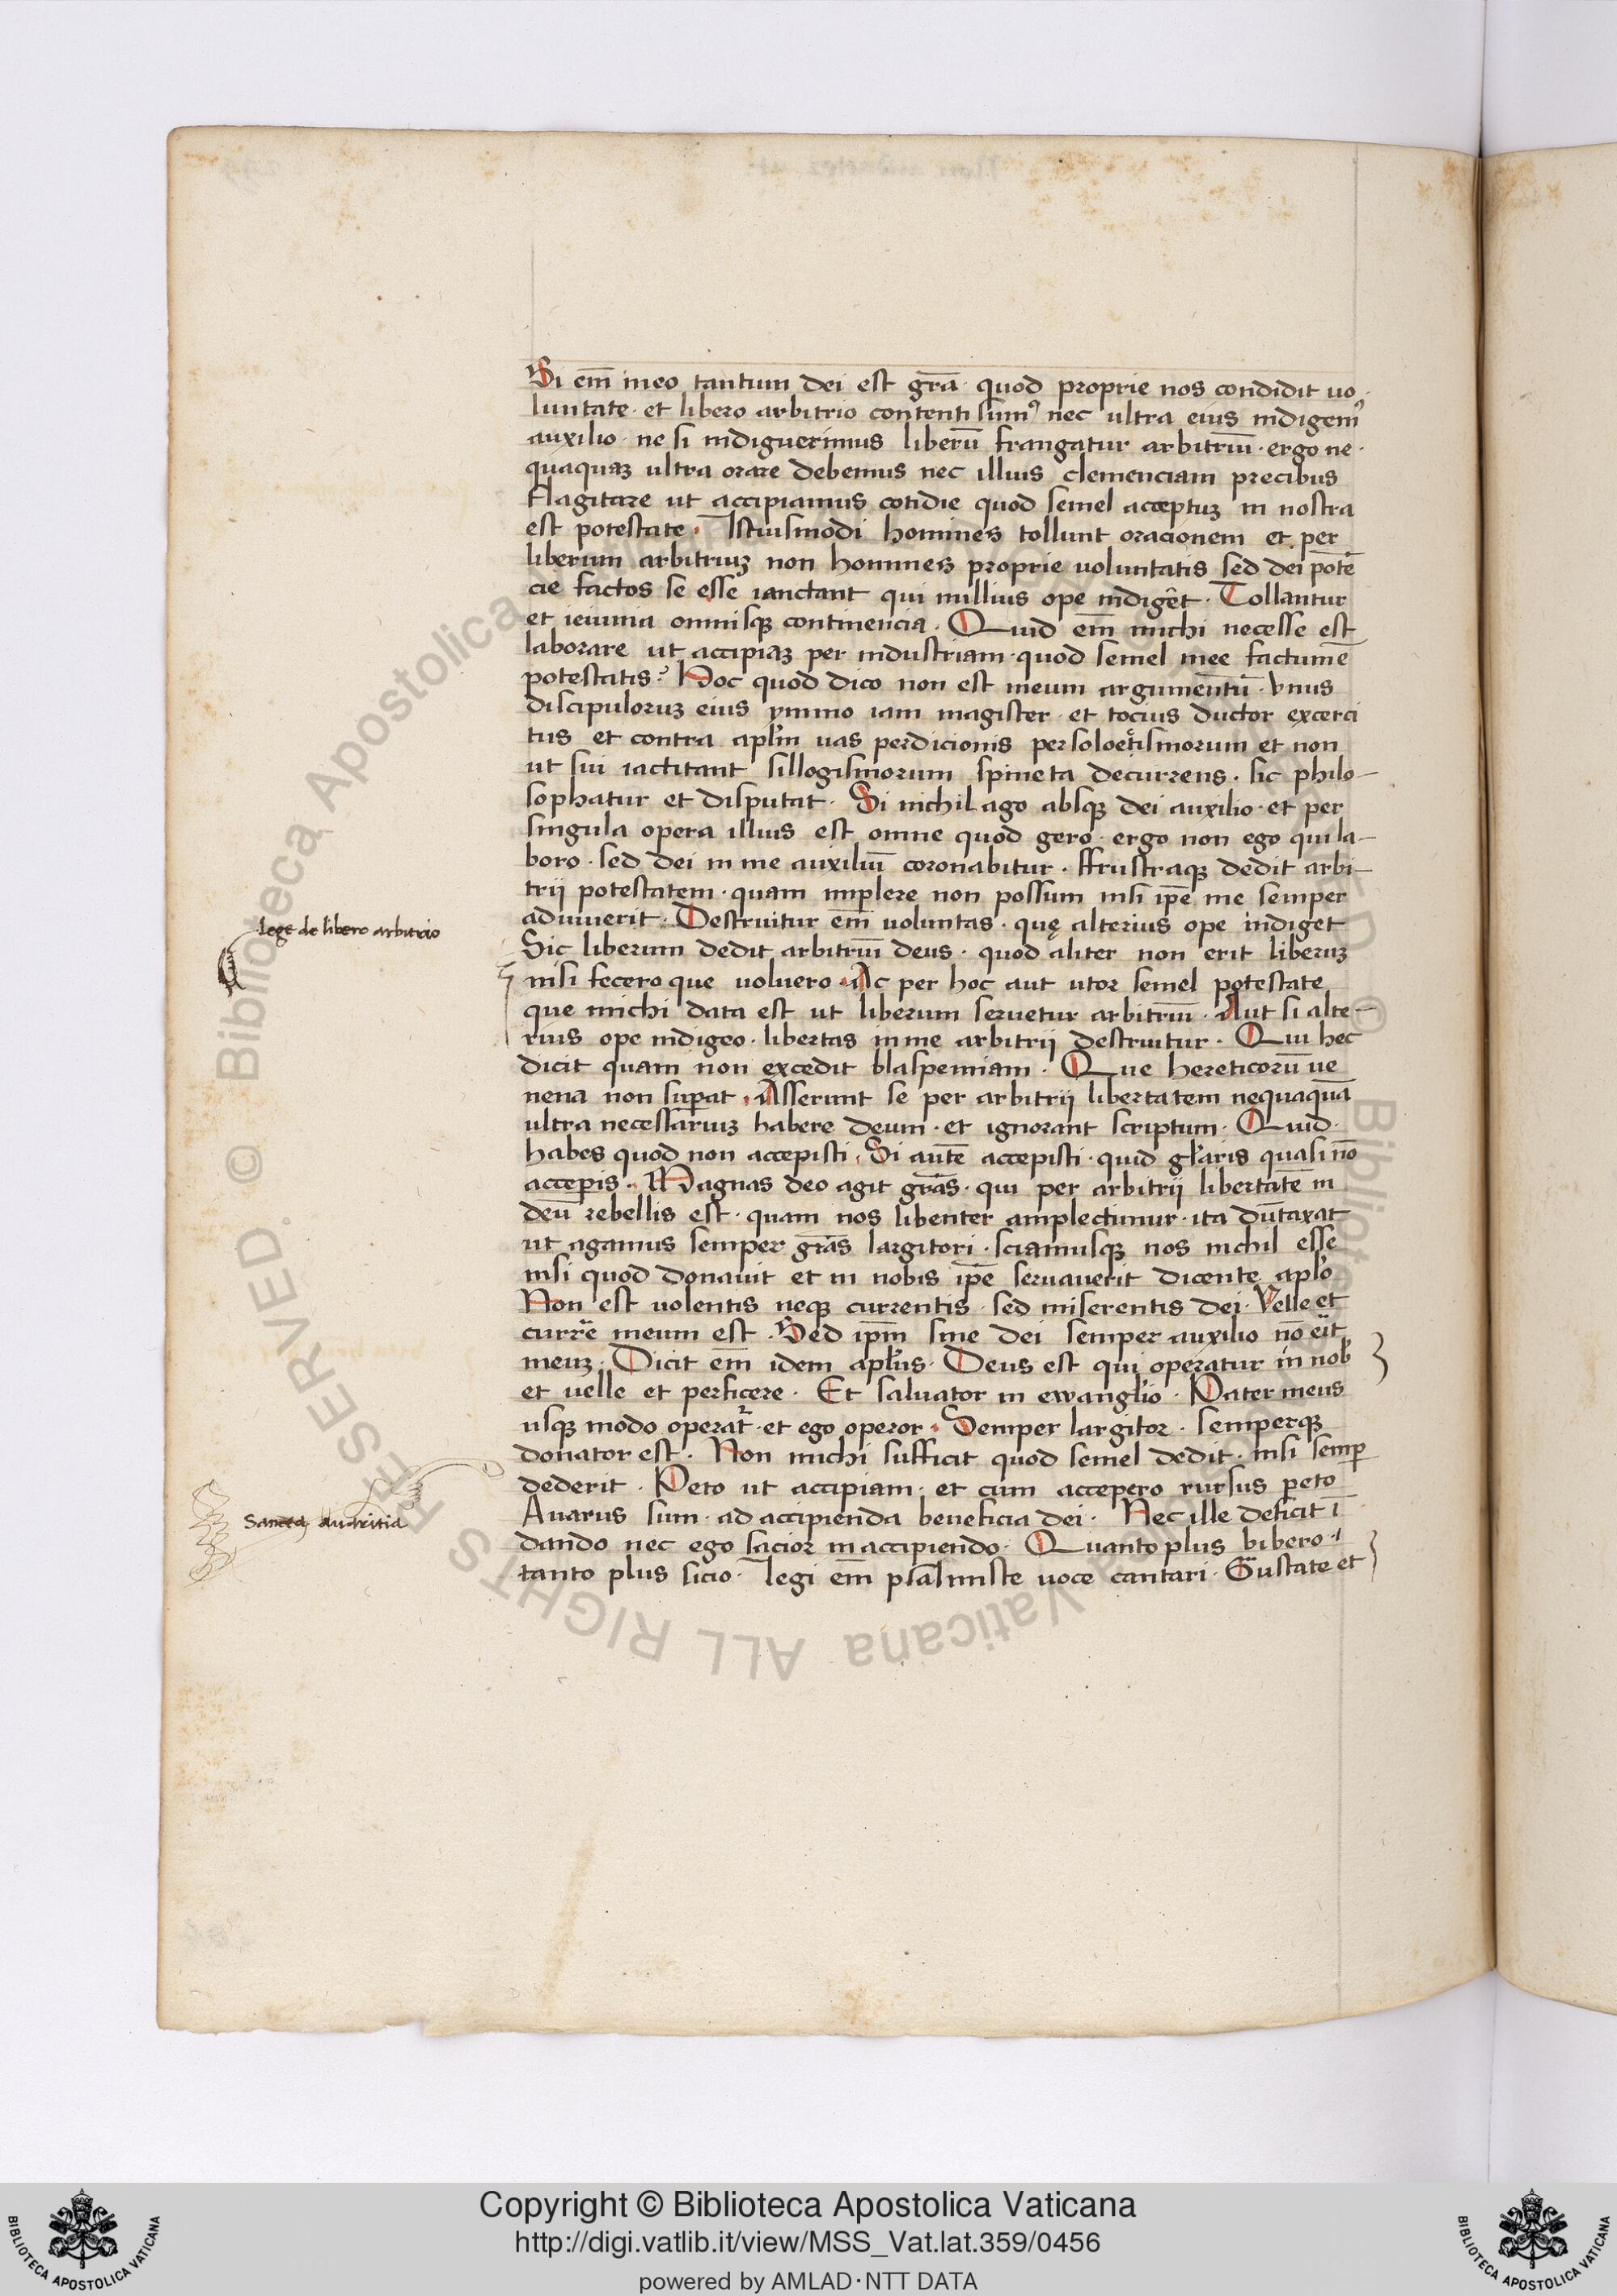 Si em̄ in eo tantum dei est gr̄a · quod proprie nos condidit uo
luntate · et libero arbitrio contenti sumꝰ nec ultra eius indigemꝰ
auxilio · ne si indiguerimus liberū frangatur arbitriū · ergo ne
quaquaꝫ ultra orare debemus nec illius clemenciam precibus
flagitare ut accipiamus cotidie quod semel acceptuꝫ in nostra
est potestate · Istiusmodi homines tollunt oracionem et per
liberum arbitriuꝫ non homines proprie uoluntatis sed dei potē
cie factos se esse ianctant qui nullius ope indigēt · Tollantur
et ieiunia omnisqꝫ continencia · Quid em̄ michi necesse est
laborare ut accipiaꝫ per industriam · quod semel mee factum ē
potestatis? Hoc quod dico non est meum argumentū · Vnus
discipuloruꝫ eius ymmo iam magister · et tocius ductor exerci
tus et contra apl̄m uas perdicionis per soloecismorum et non
ut sui iactitant sillogismorum spineta decurrens · sic philo-
sophatur et disputat · Si nichil ago absqꝫ dei auxilio · et per
singula opera illius est omne quod gero · ergo non ego qui la-
boro · sed dei in me auxiliū coronabitur · ffrustraqꝫ dedit arbi-
trij potestatem · quam implere non possum nisi ip̄e me semper
adiuuerit · Destruitur em̄ uoluntas · quę alterius ope indiget
lege de libero arbitrio
Sic liberum dedit arbitriū deus · quod aliter non erit liberuꝫ
nisi fecero que uoluero · Ac per hoc aut utor semel potestate
que michi data est ut liberum seruetur arbitriū · Aut si alte-
rius ope indigeo · libertas in me arbitrij destruitur · Qui hec
dicit quam non excedit blaspemiam · Que hereticorū ue
nena non suꝑat · Asserunt se per arbitrij libertatem nequaquā
ultra necessariuꝫ habere deum · et ignorant scriptum · Quid
habes quod non accepisti · Si autē accepisti · quid gl̄aris quasi nō
acceperis · Magnas deo agit gr̄as · qui per arbitrij libertatē in
deū rebellis est · quam nos libenter amplectimur · ita dūtaxat
ut agamus semper gr̄as largitori · sciamusqꝫ nos nichil esse
nisi quod donauit et in nobis ip̄e seruauerit dicente apl̄o
Non est uolentis neqꝫ currentis · sed miserentis dei · Velle et
curr̄e meum est · Sed ip̄m sine dei semper auxilio nō eīt
meuꝫ · Dicit em̄ idem apl̄us · Deus est qui operatur in nob̄
et uelle et perficere · Et saluator in ewangl̄io · Pater meus
usqꝫ modo operat᷑ · et ego operor · Semper largitor · semperqꝫ
donator est · Non michi sufficit quod semel dedit · nisi semꝑ
dederit · Peto ut accipiam · et cum accepero rursus peto
Sancta auaritia
Auarus sum · ad accipienda beneficia dei · Nec ille deficit ī
dando nec ego sacior in accipiendo · Quanto plus bibero ·
tanto plus sicio · Legi em̄ psalmiste uoce cantari · Gustate et
Copyright © Biblioteca Apostolica Vaticana
http://digi.vatlib.it/view/MSS_Vat.lat.359/0456
powered by AMLAD·NTT DATA
BIBLIOTECA APOSTOLICA VATICANA
BIBLIOTECA APOSTOLICA VATICANA